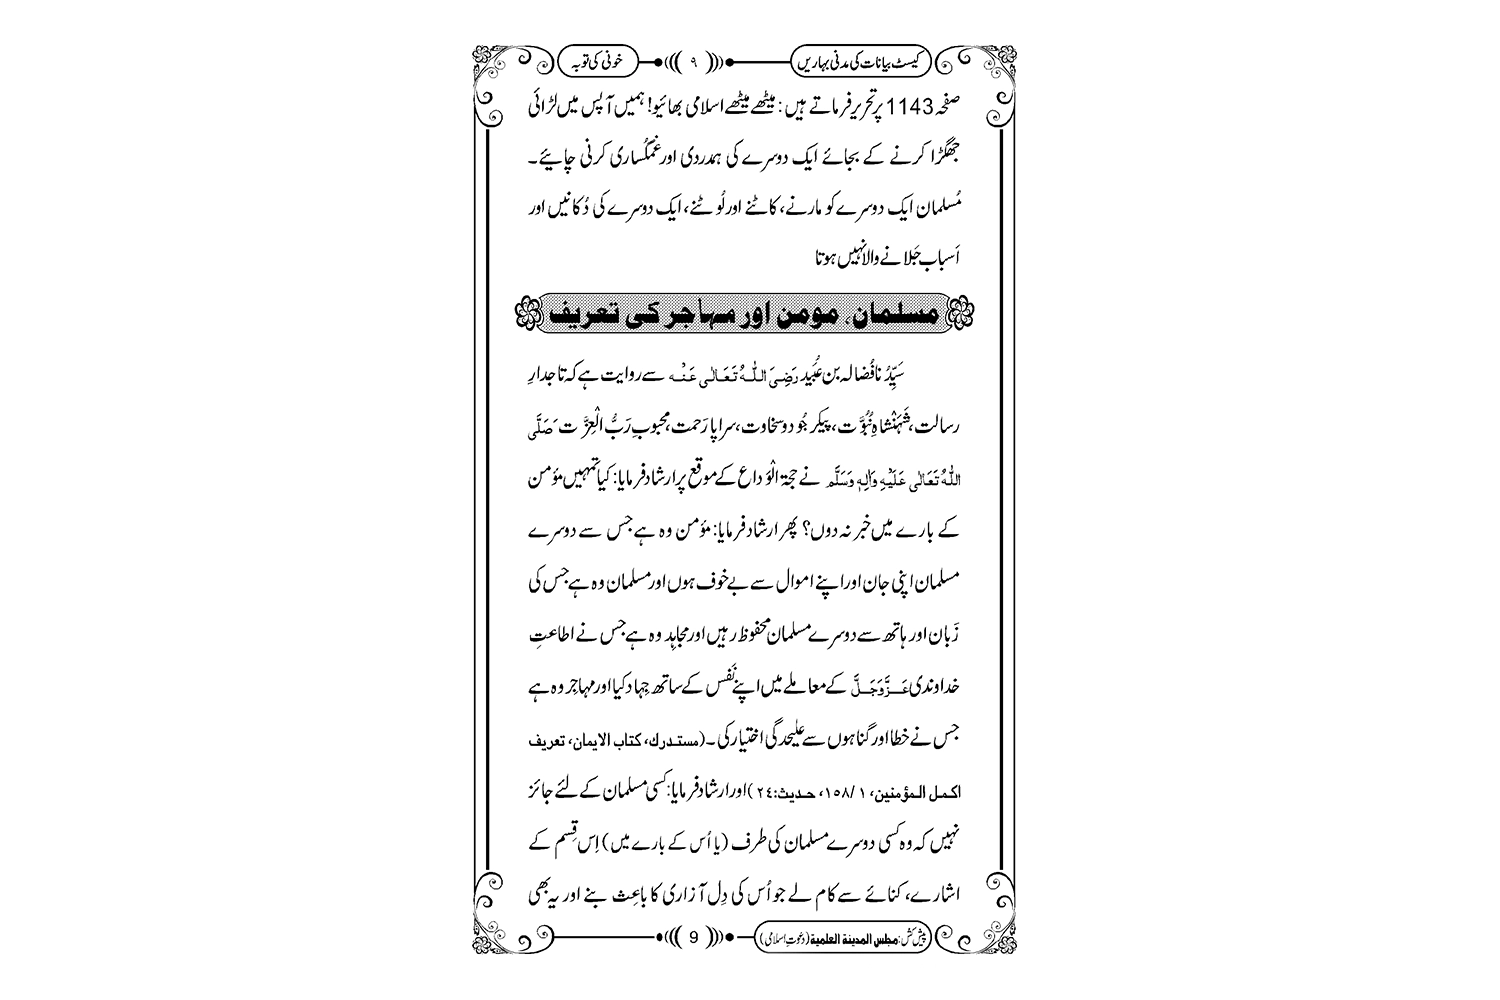 کیسٹ بیانات کی مدنی بہاریں ۹ خونی کی توبہ
صفحہ 1143 پر تحریر فرماتے ہیں: میٹھے میٹھے اسلامی بھائیو! ہمیں آپس میں لڑائی
جھگڑا کرنے کے بجائے ایک دوسرے کی ہمدردی اور غمگُساری کرنی چاہئیے۔
مُسلمان ایک دوسرے کو مارنے، کاٹنے اور لُوٹنے، ایک دوسرے کی دُکانیں اور
اَسباب جَلانے والا نہیں ہوتا
مسلمان، مومن اور مہاجر کی تعریف
سَیِّدُنا فُضالہ بن عُبَید رَضِیَ اللّٰہُ تَعَالٰی عَنْہ سے روایت ہے کہ تاجدارِ
رسالت، شَہَنْشاہِ نُبُوَّت، پیکرِ جُود و سخاوت، سراپا رَحمت، محبوبِ رَبُّ الْعِزَّت صَلَّی
اللّٰہُ تَعَالٰی عَلَیْہِ وَاٰلِہٖ وَسَلَّم نے حجۃ الْوَداع کے موقع پر ارشاد فرمایا: کیا تمہیں مؤمن
کے بارے میں خبر نہ دوں؟ پھر ارشاد فرمایا: مؤمن وہ ہے جس سے دوسرے
مسلمان اپنی جان اور اپنے اموال سے بے خوف ہوں اور مسلمان وہ ہے جس کی
زَبان اور ہاتھ سے دوسرے مسلمان محفوظ رہیں اور مجاہِد وہ ہے جس نے اطاعتِ
خداوندی عَزَّوَجَلَّ کے معاملے میں اپنے نَفْس کے ساتھ جِہاد کیا اور مہاجِر وہ ہے
جس نے خطا اور گناہوں سے علیٰحدگی اختیار کی۔ (مستدرك، كتاب الايمان، تعريف
اكمل المؤمنين، ۱/۱۵۸، حديث:۲۴) اور ارشاد فرمایا: کسی مسلمان کے لئے جائز
نہیں کہ وہ کسی دوسرے مسلمان کی طرف (یا اُس کے بارے میں) اِس قِسم کے
اشارے، کنائے سے کام لے جو اُس کی دِل آزاری کا باعِث بنے اور یہ بھی
پیش کش: مجلس المدینۃ العلمیۃ (دعوتِ اسلامی) 9